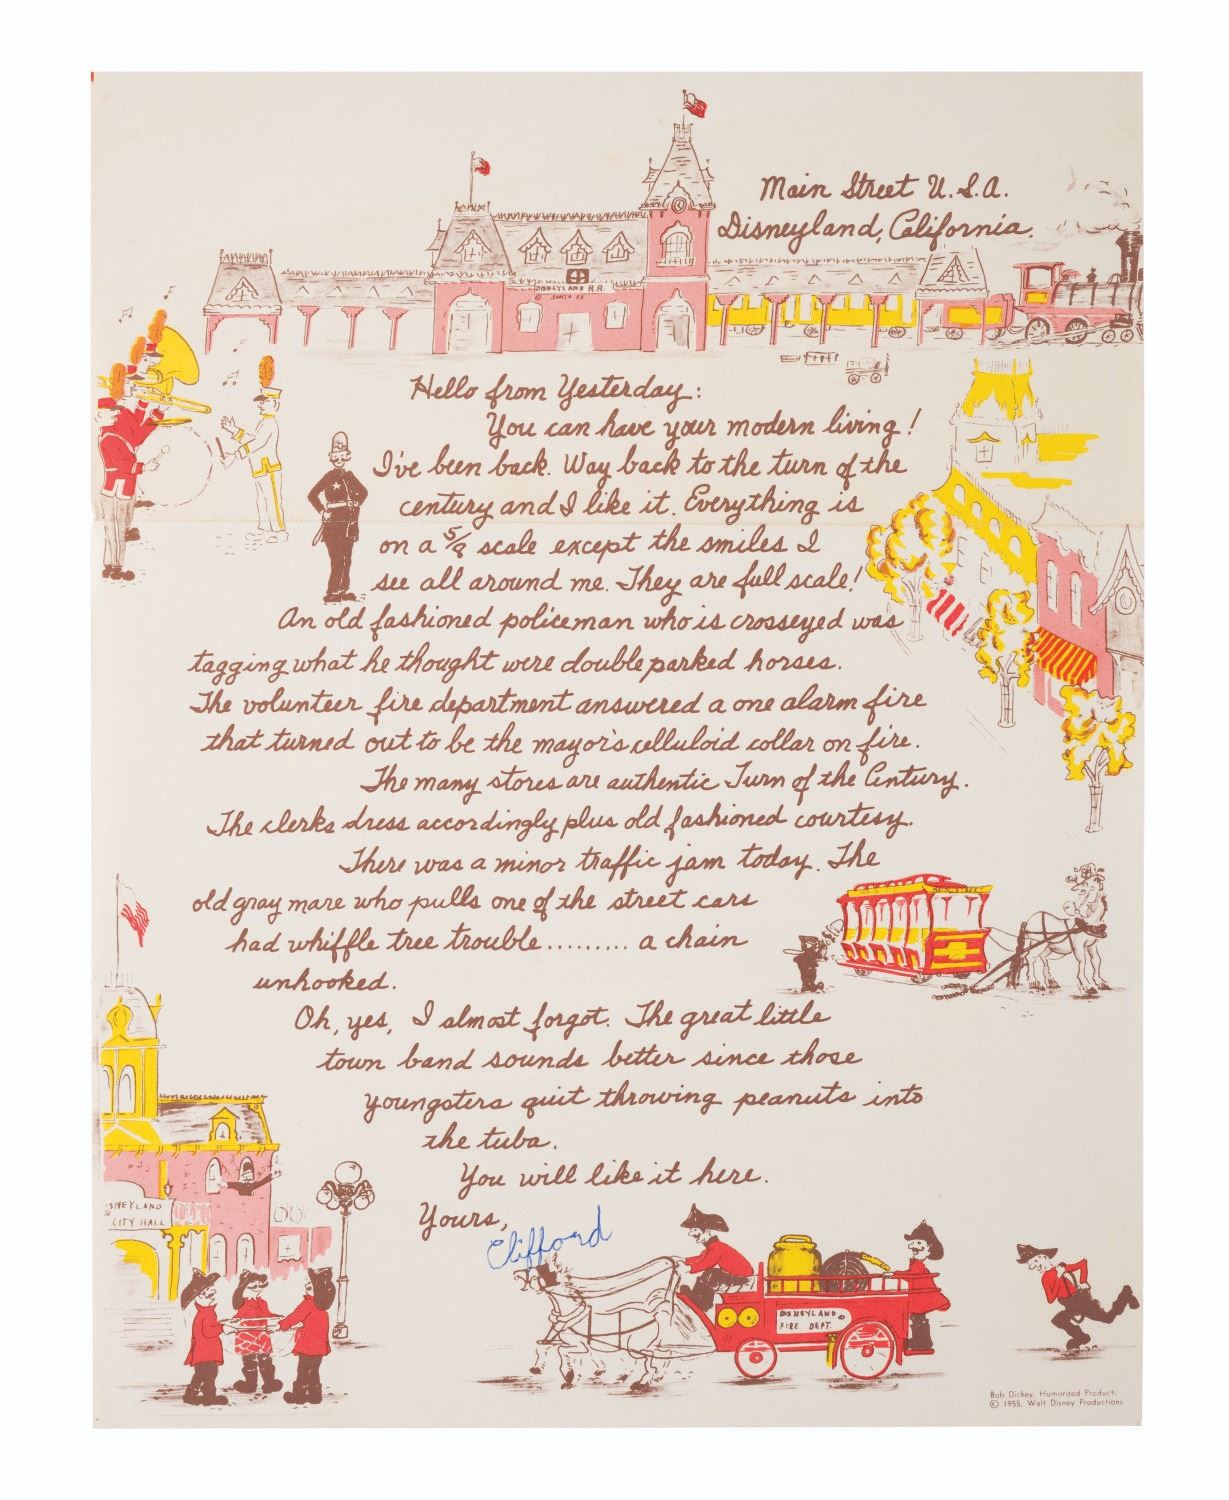 Main Street U.S.A.
Disneyland, California.
DISNEYLAND R.R.
SANTA FE
Hello from Yesterday:
You can have your modern living!
I've been back. Way back to the turn of the
century and I like it. Everything is
on a 5/8 scale except the smiles I
see all around me. They are full scale!
An old fashioned policeman who is crosseyed was
tagging what he thought were double parked horses.
The volunteer fire department answered a one alarm fire
that turned out to be the mayor's celluloid collar on fire.
The many stores are authentic Turn of the Century.
The clerks dress accordingly plus old fashioned courtesy.
There was a minor traffic jam today. The
old gray mare who pulls one of the street cars
had whiffle tree trouble......... a chain
unhooked.
Oh, yes, I almost forgot. The great little
town band sounds better since those
youngsters quit throwing peanuts into
the tuba.
You will like it here.
Yours,
Clifford
SNEYLAND
CITY HALL
DISNEYLAND
FIRE DEPT.
Bob Dickey, Humorized Products
© 1955, Walt Disney Productions